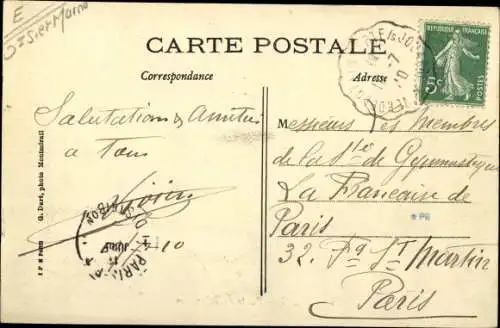 E
Sse et Marne
CARTE POSTALE
Correspondance
Adresse
REPUBLIQUE FRANÇAISE
5c
POSTES
Salutations & Amitiés
a Tous
10
Messieurs les Membres
de la Sté de Gymnastique
La Française de
Paris
32. Fg St Martin
Paris
*PH
G. Dart, photo Montmirail
PARIS